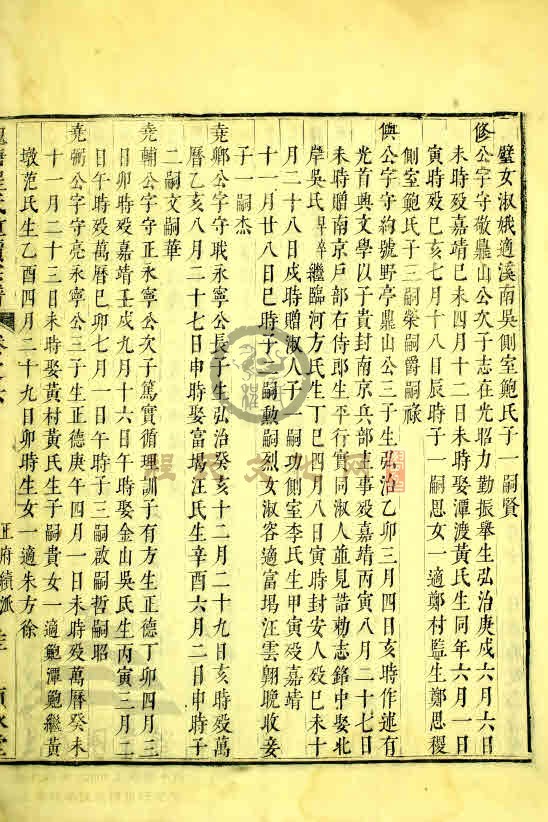 璧女淑娥適溪南吳側室鮑氏子一嗣賢
脩公字守敬鼎山公次子志在光昭力勤振舉生弘治庚戌六月六日
未時殁嘉靖己未四月十二日未時娶潭渡黃氏生同年六月一日
寅時殁己亥七月十八日辰時子一嗣思女一適鄭村監生鄭思稷
側室鮑氏子三嗣榮嗣爵嗣祿
公字守約號野亭鼎山公三子生弘治乙卯三月四日亥時作運有
光首興文學以子貴封南京兵部主事殁嘉靖丙寅八月二十七日
未時贈南京戶部右侍郎生平行實同淑人並見誥勅志銘中娶北
岸吳氏早卒繼臨河方氏生丁巳四月八日寅時封安人殁己未十
月二十八日戌時贈淑人子一嗣功側室李氏生甲寅殁嘉靖
十一月廿八日巳時子二嗣勲嗣烈女淑容適富堨汪雲翺晩收妾
子一嗣杰
堯卿公字守職永寧公長子生弘治癸亥十二月二十九日亥時殁萬
曆乙亥八月二十七日申時娶富堨汪氏生辛酉六月二日申時子
二嗣文嗣華
堯輔公字守正永寧公次子篤實循理訓子有方生正德丁卯四月三
日卯時殁嘉靖壬戌九月十六日午時娶金山吳氏生丙寅三月二
日午時殁萬曆己卯七月一日午時子三嗣啟嗣哲嗣昭
堯弼公字守亮永寧公三子生正德庚午四月一日未時殁萬曆癸未
十一月二十三日未時娶黃村黃氏生子嗣貴女一適鮑潭鮑繼黃
墩范氏生乙酉四月二十九日卯時生女一適朱方徐
正府續派
程氏文化网